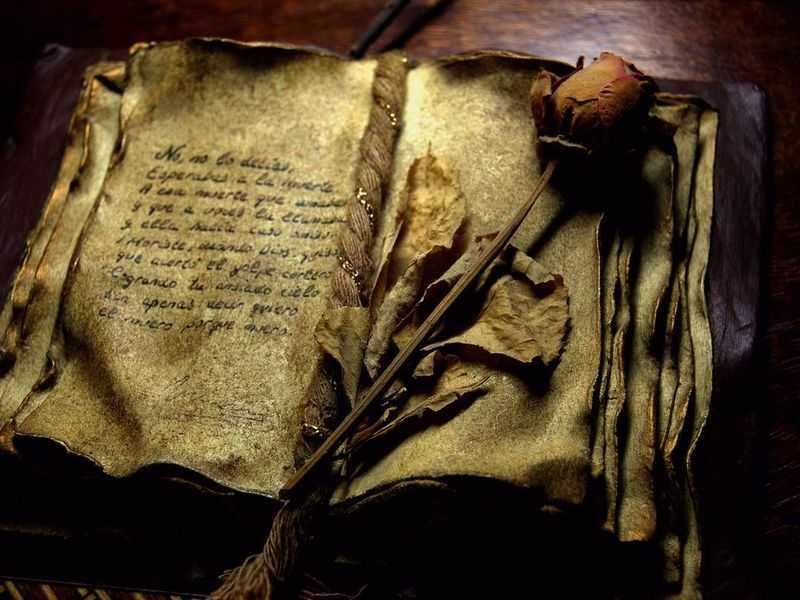 No, no lo decías,
Esperabas a la muerte
A esa muerte que amabas
y que a voces la llamabas
y ella hacía caso omiso
Moriste, cuando Dios quiso
que acertó el golpe certero
Logrando tu ansiado cielo
Aún apenas decir quiero
el muero porque muero.